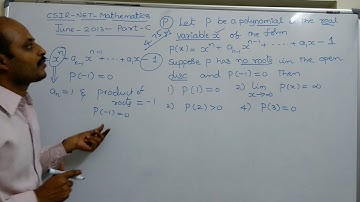 CSIR-NET-Mathematics
June-2013-Part-C
P Let P be a polynomial of the real
variable x of the form
P(x) = xⁿ + aₙ₋₁ xⁿ⁻¹ + ..... + a₁x - 1
Suppose P has no roots in the open
disc and P(-1)=0 Then
1) P(1)=0 2) lim x→∞ P(x)=∞
3) P(2)>0 4) P(3)=0
xⁿ + aₙ₋₁ xⁿ⁻¹ + ..... + a₁x - 1
P(-1)=0
aₙ=1 & product of
roots = -1
P(-1)=0